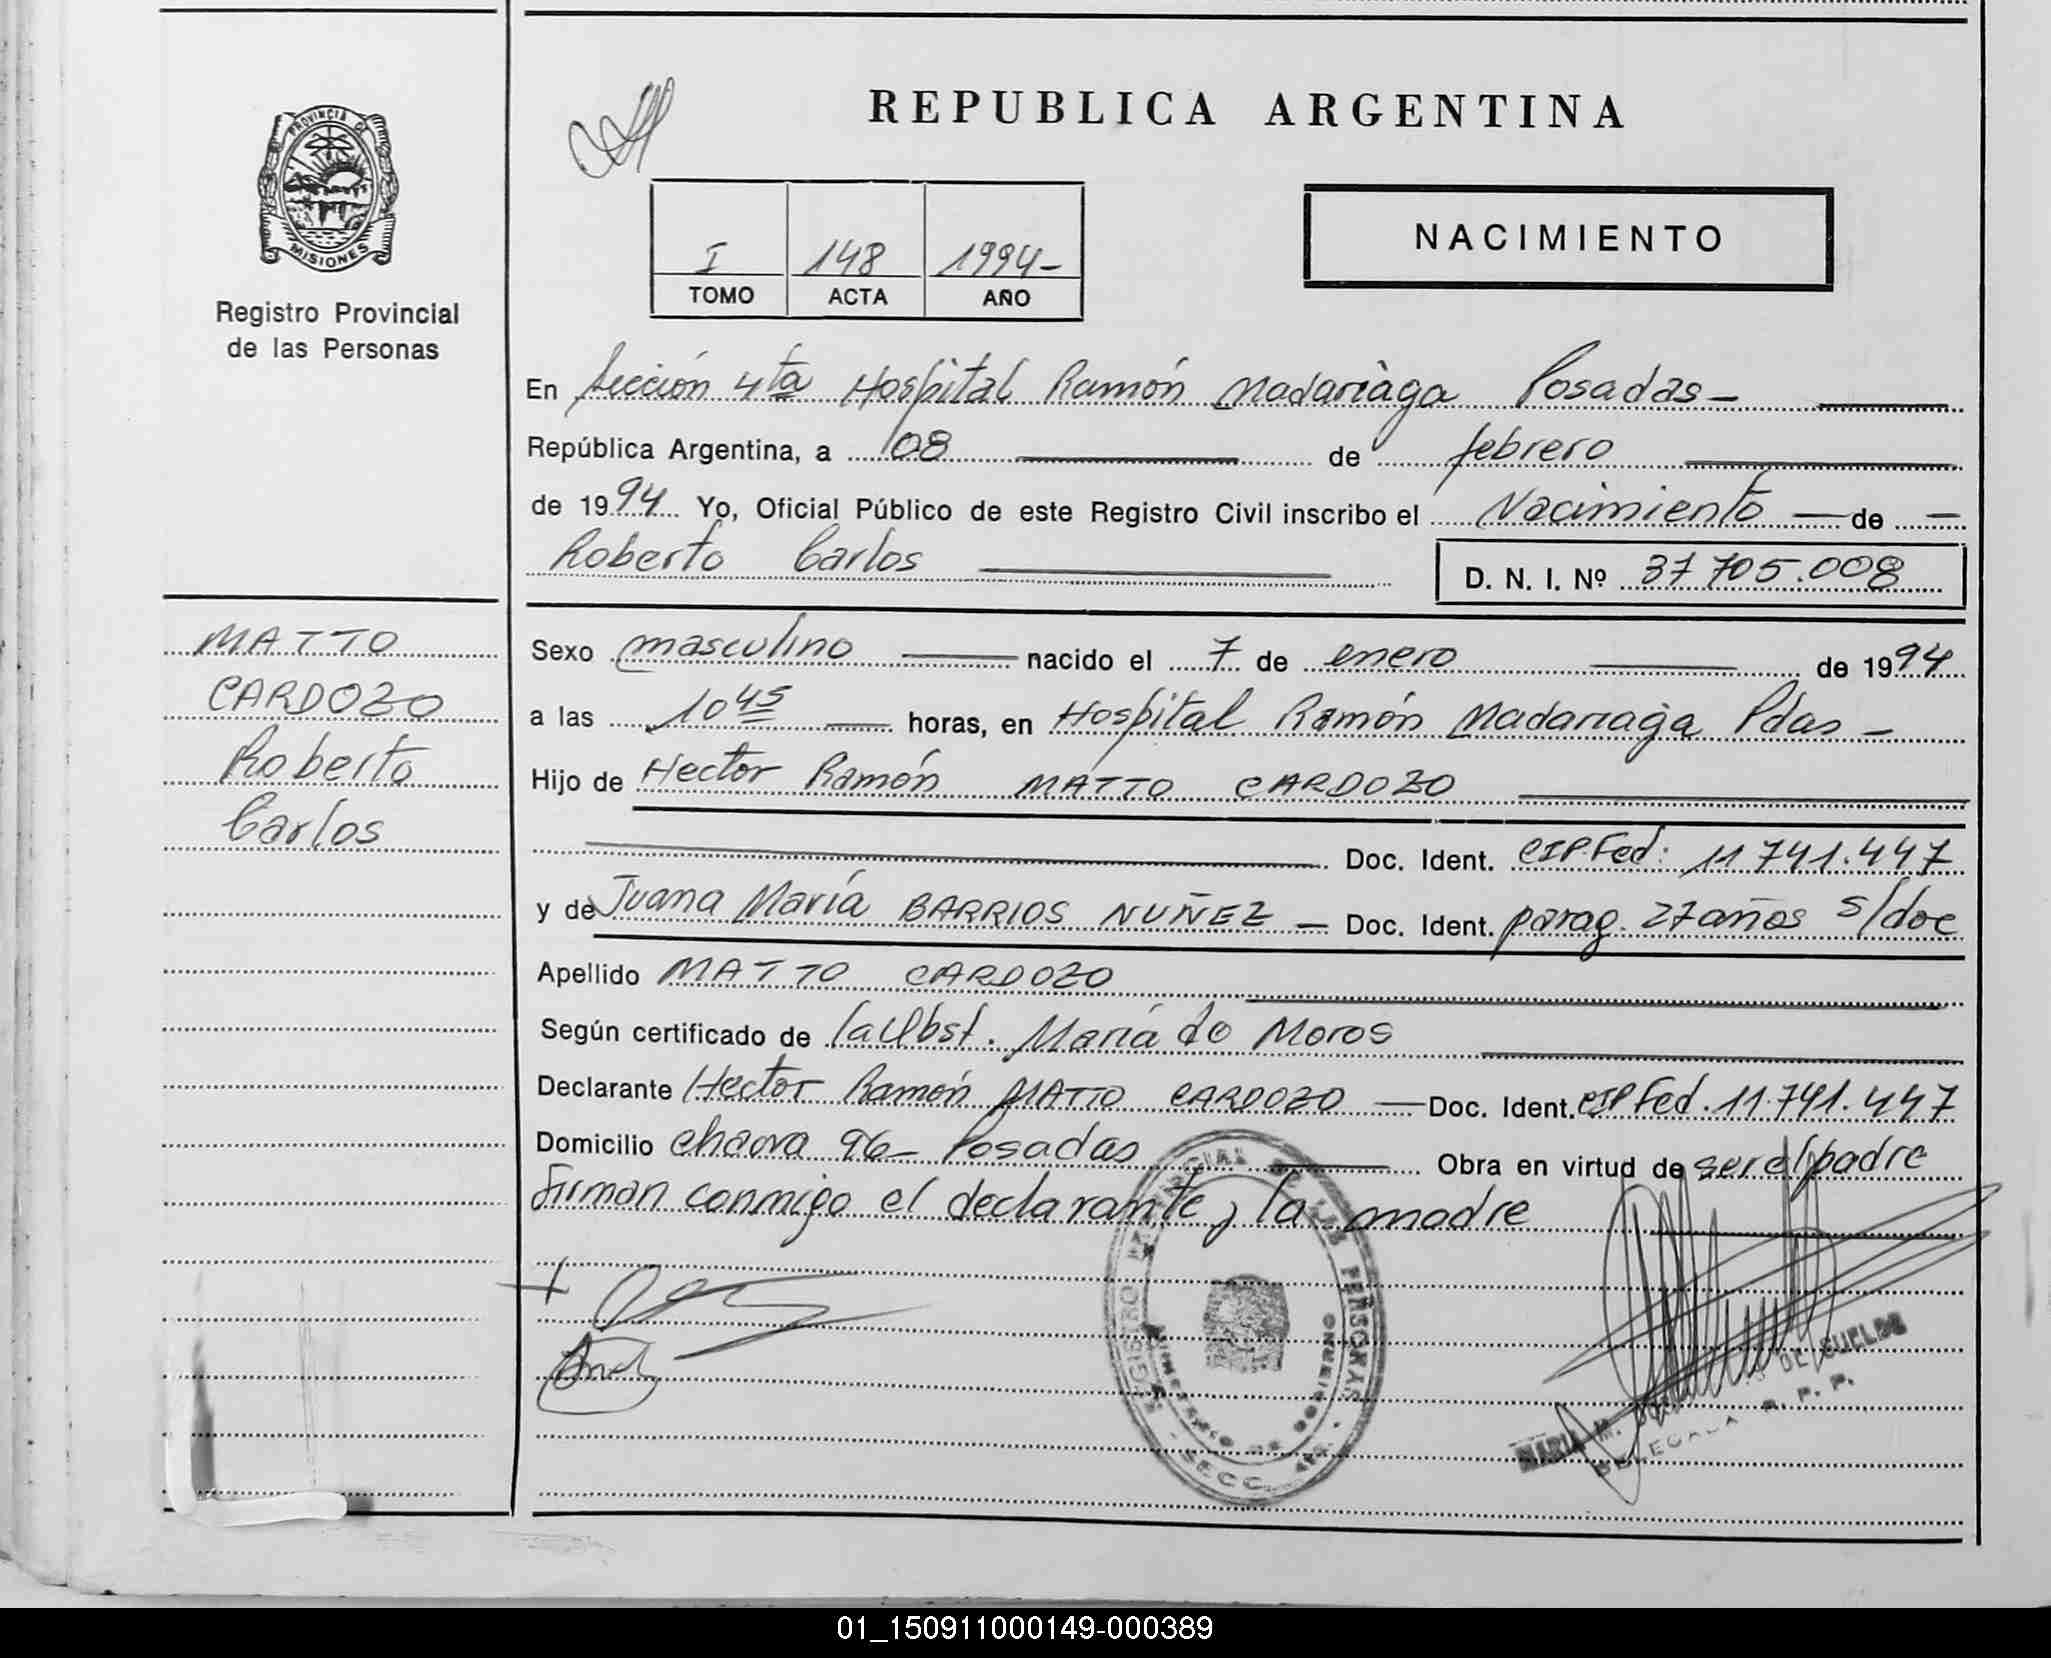 PROVINCIA DE
MISIONES
Registro Provincial
de las Personas
REPUBLICA ARGENTINA
NACIMIENTO
I 148 1994-
TOMO ACTA AÑO
En Sección 4ta Hospital Ramón Madariaga Posadas-
República Argentina, a 08 de febrero
de 1994 Yo, Oficial Público de este Registro Civil inscribo el Nacimiento de
Roberto Carlos D. N. I. Nº 37705.008
MATTO
CARDOZO
Roberto
Carlos
Sexo masculino nacido el 7 de enero de 1994
a las 10 45 horas, en Hospital Ramón Madariaga Pdas -
Hijo de Hector Ramón MATTO CARDOZO
Doc. Ident. CIP.Fed: 11741.447
y de Juana María BARRIOS NUÑEZ - Doc. Ident. parag. 27 años s/doc
Apellido MATTO CARDOZO
Según certificado de la Obst. María de Moros
Declarante Hector Ramón MATTO CARDOZO - Doc. Ident. CIP Fed. 11.741.447
Domicilio Chacra 96- Posadas Obra en virtud de ser el padre
Firman conmigo el declarante y la madre
REGISTRO PROVINCIAL DE LAS PERSONAS
MINISTERIO DE GOBIERNO
SECC. 4ta.
MARIA M. DE SUELDO
DELEGADA R. P. P.
01_150911000149-000389